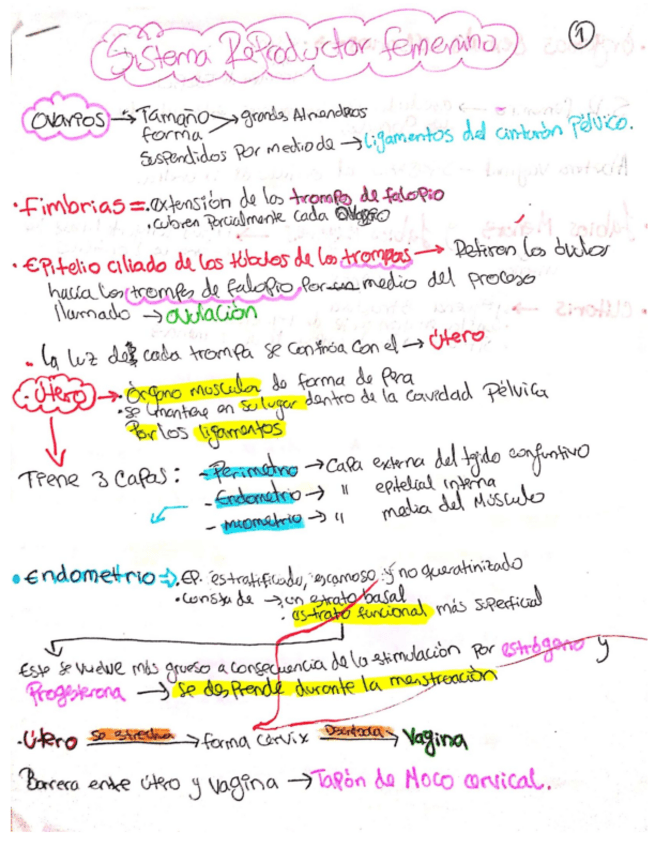 1
Sistema Reproductor femenino
Ovarios → Tamaño → grandes Almendras
forma
Suspendidos por medio de → ligamentos del cinturón Pélvico.
· Fimbrias = · extensión de las trompas de falopio
· cubren parcialmente cada Ovario
· EPitelio ciliado de las túbulos de las trompas → Retiran los óvulos
hacía las trompas de falopio Por medio del proceso
llamado → ovulación
· La luz de cada trompa se continúa con el → Útero
· Útero → · Órgano muscular de forma de Pera
· se mantiene en su lugar dentro de la cavidad Pélvica
Por los ligamentos
Tiene 3 capas: - Perimetrio → Capa externa del tejido conjuntivo
- Endometrio → " epitelial interna
- miometrio → " media del Músculo
· Endometrio ⇒ · EP. estratificado, escamoso y no queratinizado
· consta de → un estrato basal
· estrato funcional más superficial
Este se vuelve más grueso a consecuencia de la estimulación por estrógeno y
Progesterona → se desprende durante la menstruación
· Útero se estrecha → forma Cérvix → Vagina
Barrera entre útero y vagina → Tapón de Moco cervical.